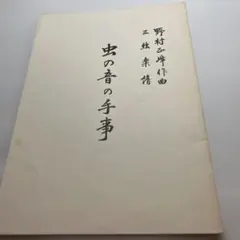 野村正峰作曲
三弦楽譜
虫の音の手事